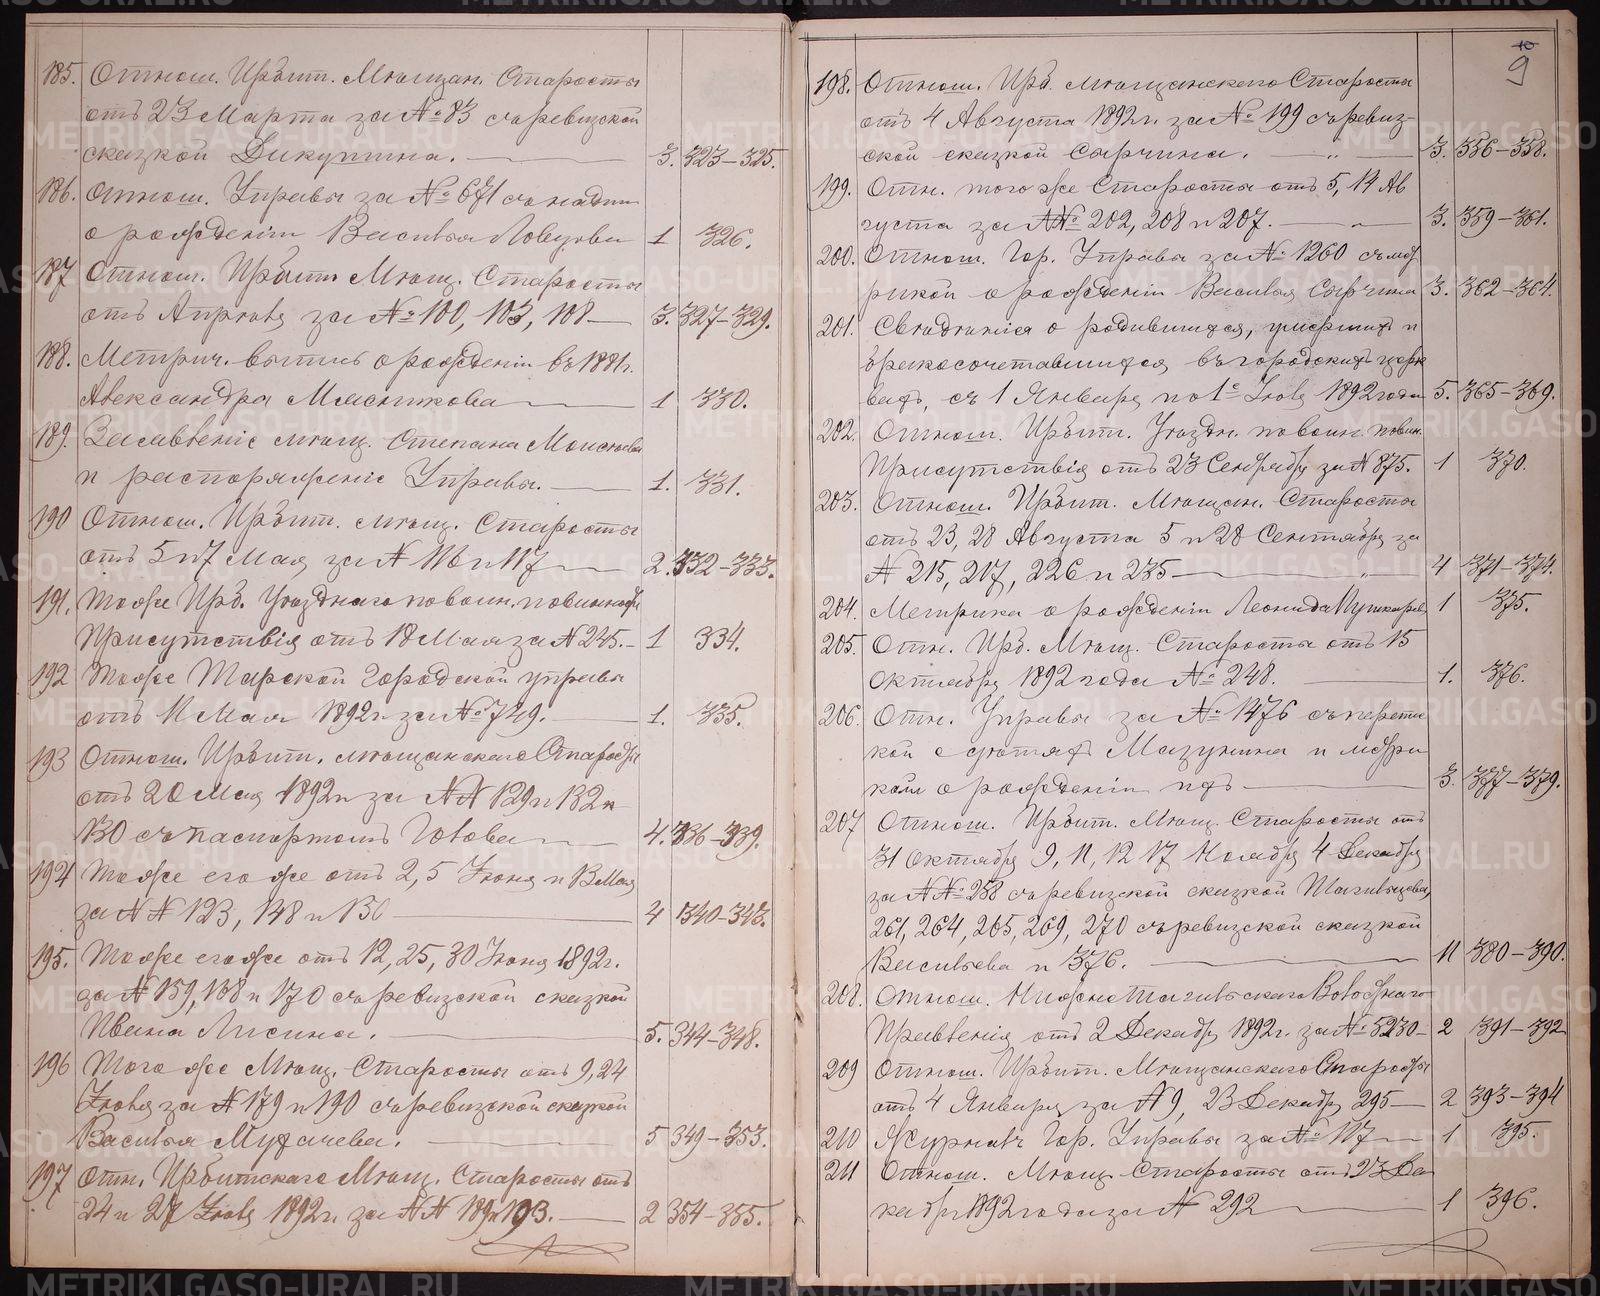 185. Отнош. Ирбит. Мѣщан. Старосты
отъ 23 Марта за № 83 съ ревизской
сказкой Дикушина. — 3. 323–325.
186. Отнош. Управы за № 671 съ
о рожденіи Василья 1 326.
187 Отнош. Ирбит Мѣщ. Старосты
отъ Апрѣля за № 100, 103, 108 — 3. 327–329.
188. Метрич. выпись о рожденіи въ 1881 г.
Александра Мясникова — 1 330.
189. Заявленіе мѣщ. Степана Моисѣева
и распоряженіе Управы. — 1. 331.
190 Отнош. Ирбит. мѣщ. Старосты
отъ 5 и 7 Мая за № 116 и 117 — 2. 332–333.
191. Тоже Ирб. Уѣзднаго по воин. повинности
Присутствія отъ 18 Мая за № 245. – 1 334.
192 Тоже Тарской Городской управы
отъ 11 Мая 1892 г. за № 749. — 1. 335.
193 Отнош. Ирбит. мѣщанскаго Старосты
отъ 20 Мая 1892 г. за №№ 129 и 132 и
130 съ паспортомъ — 4. 336–339.
194 Тоже его же отъ 2, 5 Іюня и 13 Мая
за №№ 123, 148 и 130 — 4 340–343.
195. Тоже его же отъ 12, 25, 30 Іюня 1892 г.
за № 159, 168 и 170 съ ревизской сказкой
Ивана Лисина. — 5. 344–348.
196 Того же Мѣщ. Старосты отъ 9, 24
Іюля за № 179 и 190 съ ревизской сказкой
Василья Мугачева. — 5 349–353.
197 Отн. Ирбитскаго Мѣщ. Старосты отъ
24 и 27 Іюля 1892 г. за №№ 189 и 193. — 2 354–355.
10
9
198. Отнош. Ирб. мѣщанскаго Старосты
отъ 4 Августа 1892 г. за № 199 съ ревиз-
ской сказкой Сарчина. — „ — 3. 356–358.
199. Отн. того же Старосты отъ 5, 14 Ав
густа за №№ 202, 208 и 207. — „ 3. 359–361.
200. Отнош. Гор. Управы за № 1260 съ мет
рикой о рожденіи Василья Сарчина 3. 362–364.
201. Свѣдѣнія о родившихся, умершихъ и
бракосочетавшихся въ городскихъ церк
вахъ, съ 1 Января по 1е Іюля 1892 года 5. 365–369.
202. Отнош. Ирбит. Уѣздн. по воин. повин.
Присутствія отъ 23 Сентября за № 875. 1 370.
203. Отнош. Ирбит. Мѣщан. Старосты
отъ 23, 28 Августа 5 и 28 Сентября за
№ 215, 217, 226 и 235 — „ 4 371–374.
204. Метрика о рожденіи Леонида Пушкарев 1 375.
205. Отн. Ирб. Мѣщ. Старосты отъ 15
Октября 1892 года № 248. — 1. 376.
206. Отн. Управы за № 1476 съ перепис
кой о дѣтяхъ Мазунина и метри
ками о рожденіи ихъ — 3. 377–379.
207 Отнош. Ирбит. Мѣщ. Старосты отъ
31 Октября 9, 11, 12 17 Ноября 4 Декабря
за №№ 258 съ ревизской сказкой Тагильцева,
261, 264, 265, 269, 270 съ ревизской сказкой
Васильева и 376. — 11 380–390.
208. Отнош. Нижне Тагильскаго Волостнаго
Правленія отъ 2 Декабр. 1892 г. за № 5230 – 2 391–392
209 Отнош. Ирбит. Мѣщанскаго Старосты
отъ 4 Января за № 9, 23 Декабря 295 — 2 393–394
210 Журналъ Гор. Управы за № 117 — 1 395.
211 Отнош. Мѣщ Старосты отъ 23 Де
кабря 1892 года за № 292 — 1 396.
METRIKI.GASO-URAL.RU